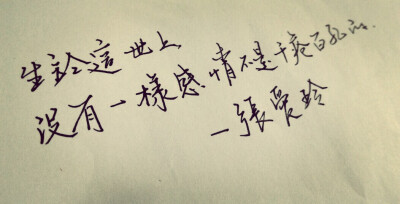 生於這世上
没有一樣感情不是千瘡百孔的.
—張愛玲